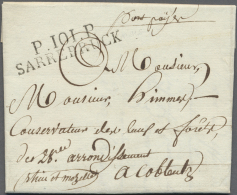 Port payé
P.101.P.
SARREBRUCK
Monsieur
Monsieur, Himmes
Conservateur des Eaux et forêts
des 28me arrondissement
(rhin et mozelle)
a Coblentz